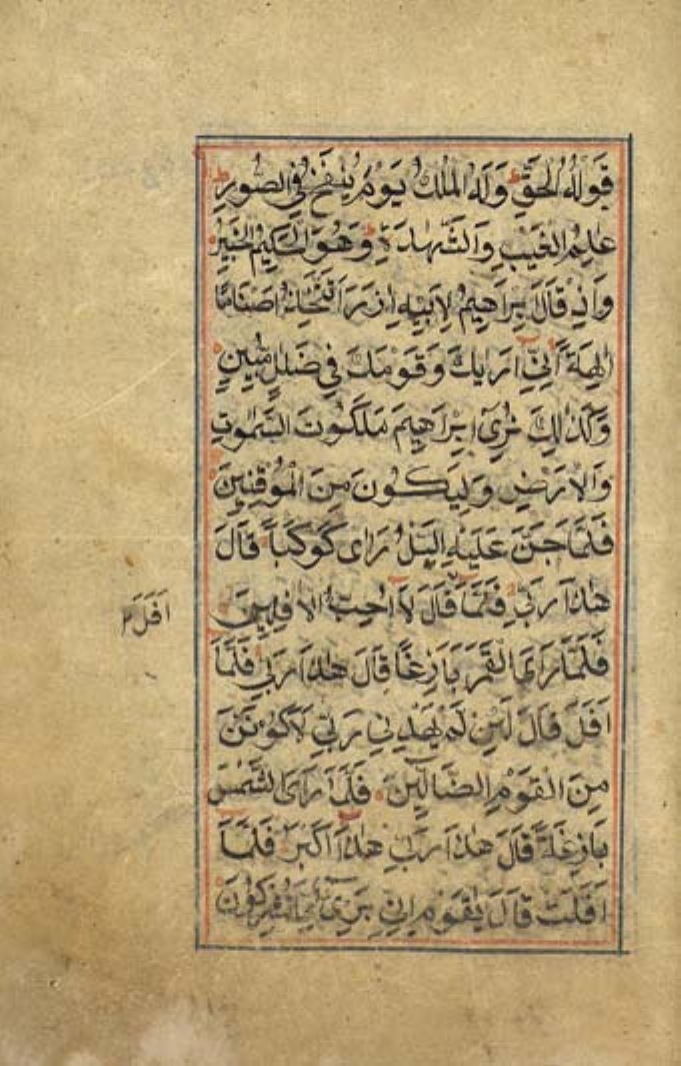 قَوْلُهُ الْحَقُّ ط وَلَهُ الْمُلْكُ يَوْمَ يُنْفَخُ فِي الصُّورِ ط
عٰلِمُ الْغَيْبِ وَالشَّهَادَةِ ط وَهُوَ الْحَكِيمُ الْخَبِيرُ
وَاِذْ قَالَ اِبْرَاهِيمُ لِاَبِيهِ اٰزَرَ اَتَتَّخِذُ اَصْنَامًا
اٰلِهَةً اِنِّي اَرٰيكَ وَقَوْمَكَ فِي ضَلٰلٍ مُبِينٍ
وَكَذٰلِكَ نُرِي اِبْرَاهِيمَ مَلَكُوتَ السَّمٰوٰتِ
وَالْاَرْضِ وَلِيَكُونَ مِنَ الْمُوقِنِينَ
فَلَمَّا جَنَّ عَلَيْهِ الَّيْلُ رَاٰى كَوْكَبًا قَالَ
هٰذَا رَبِّي فَلَمَّا قَالَ لَا اُحِبُّ الْاٰفِلِينَ
اَفَلَ
فَلَمَّا رَاَى الْقَمَرَ بَازِغًا قَالَ هٰذَا رَبِّي فَلَمَّا
اَفَلَ قَالَ لَئِنْ لَمْ يَهْدِنِي رَبِّي لَاَكُونَنَّ
مِنَ الْقَوْمِ الضَّالِّينَ فَلَمَّا رَاَى الشَّمْسَ
بَازِغَةً قَالَ هٰذَا رَبِّي هٰذَا اَكْبَرُ فَلَمَّا
اَفَلَتْ قَالَ يٰقَوْمِ اِنِّي بَرِيءٌ مِمَّا تُشْرِكُونَ